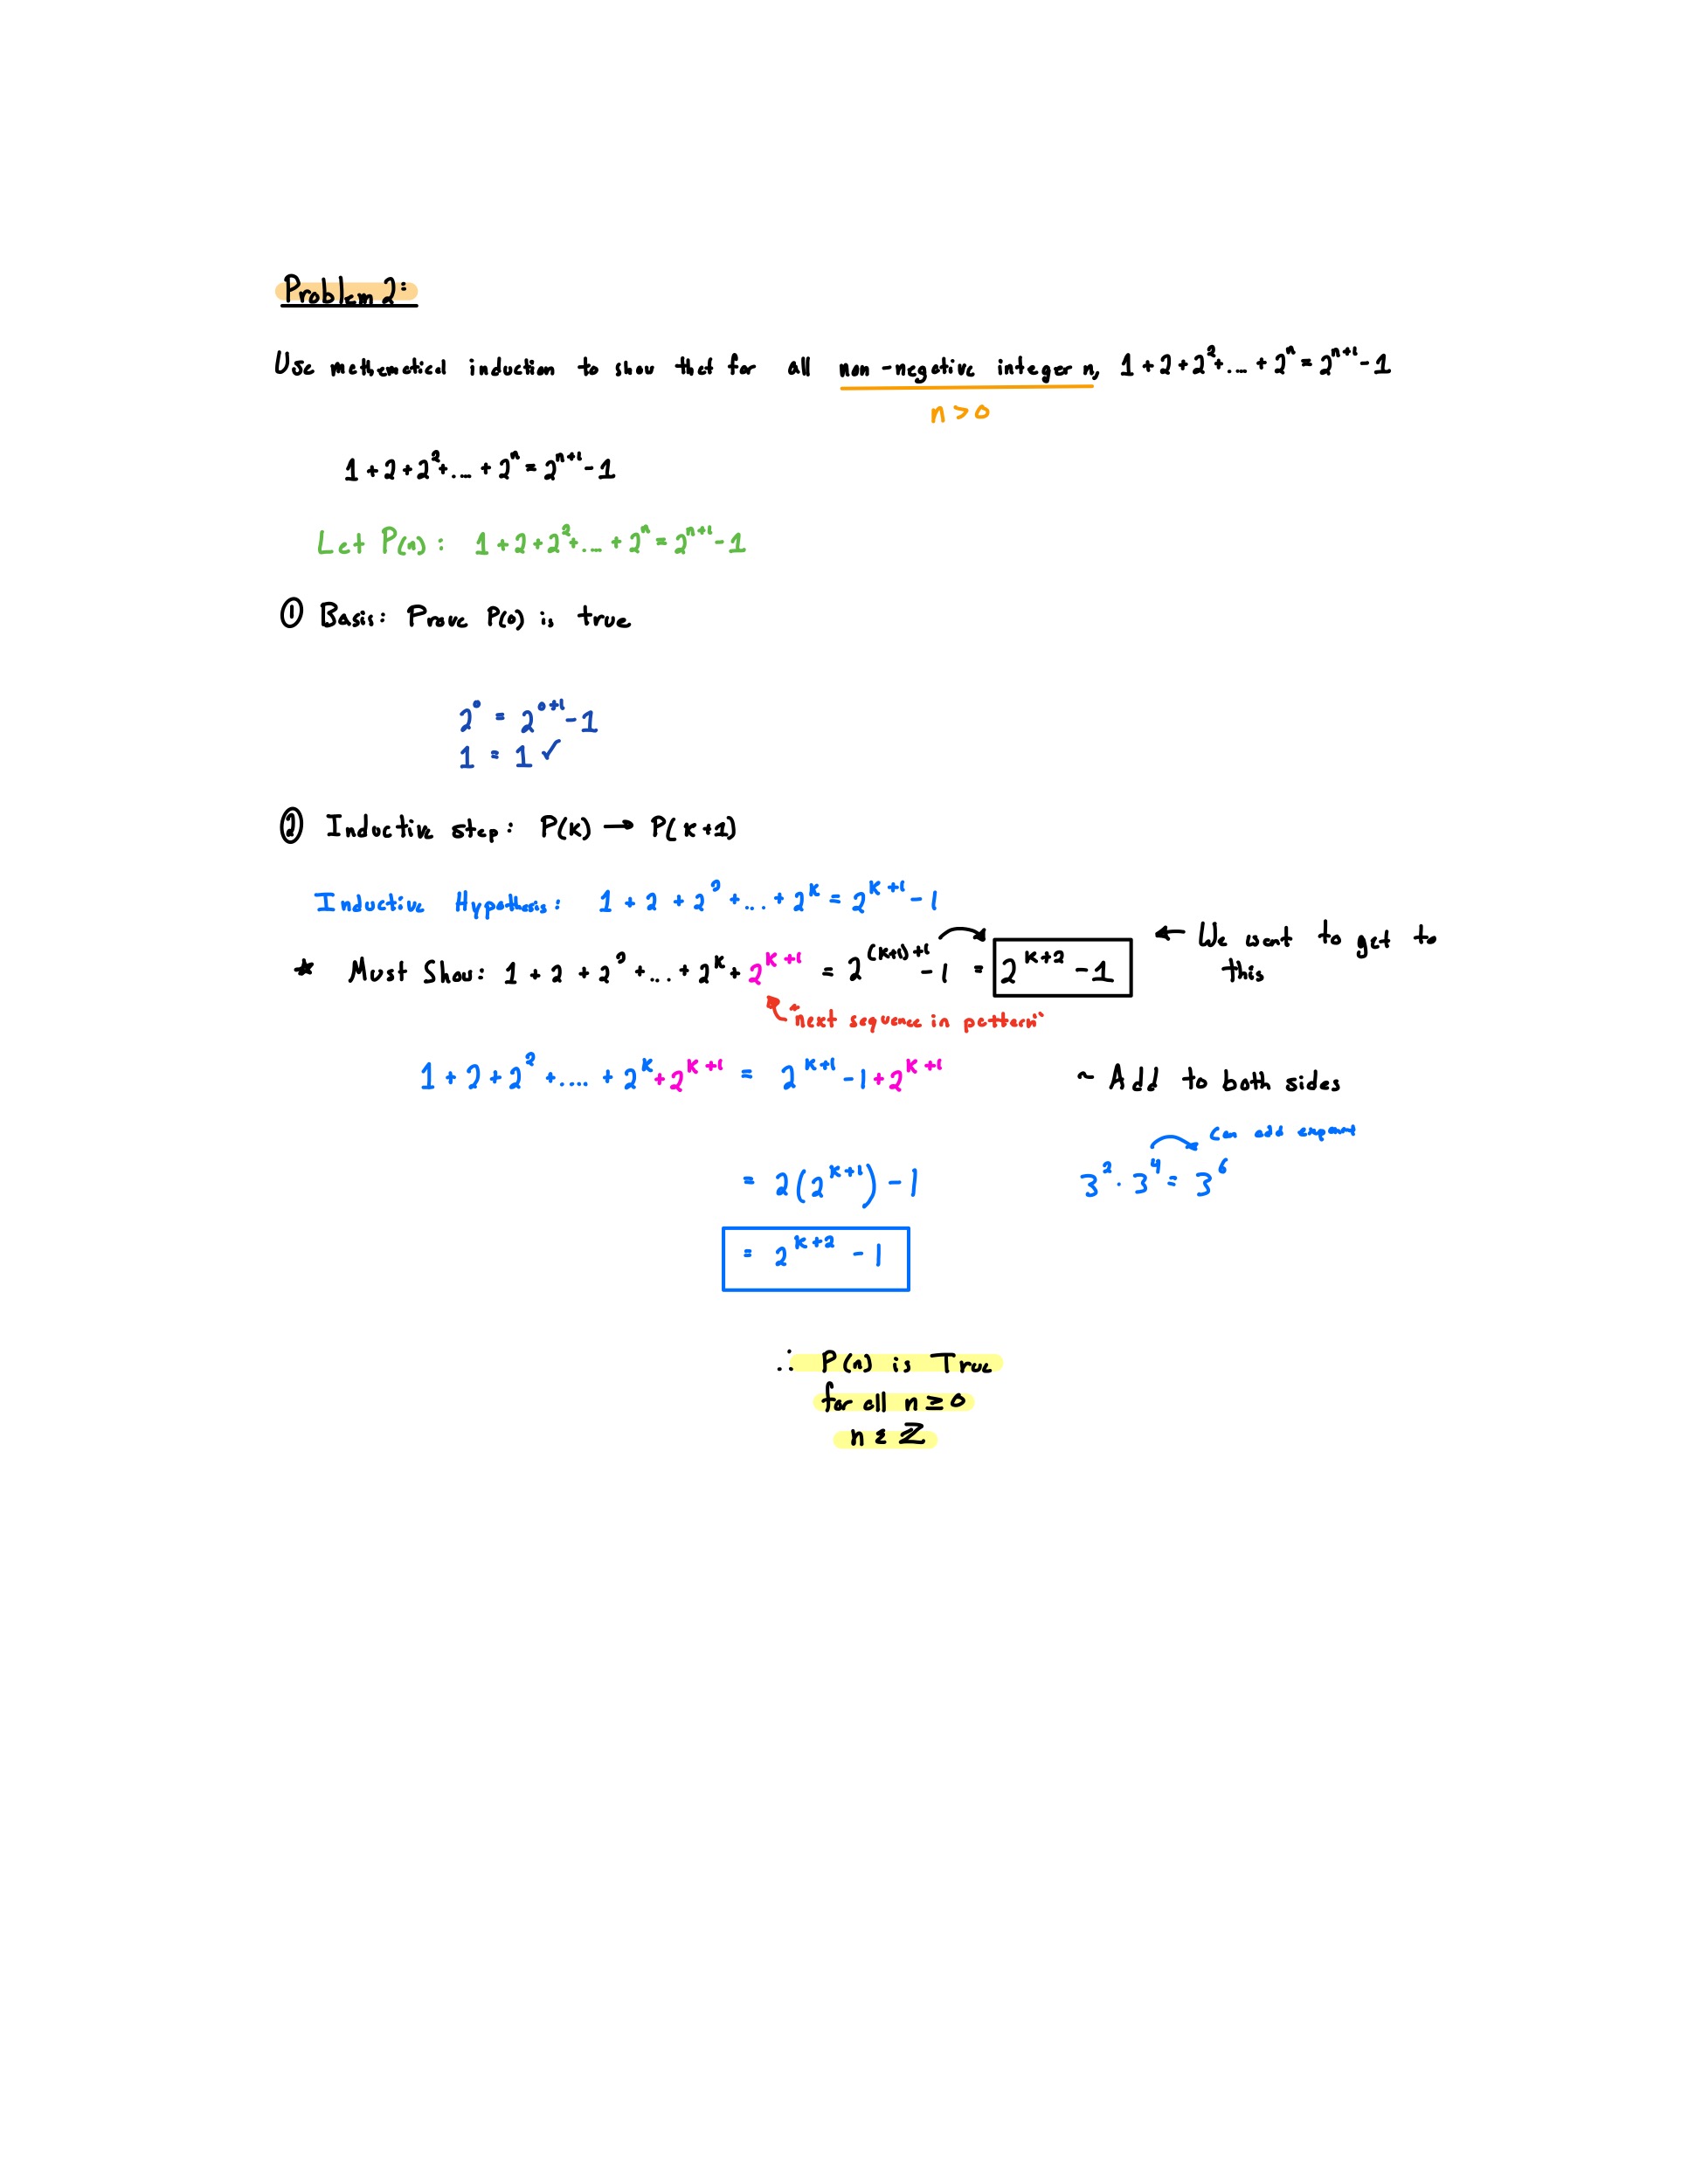 Problem 2:
Use mathematical induction to show that for all non-negative integer n, 1 + 2 + 2² + ... + 2ⁿ = 2ⁿ⁺¹ - 1
n > 0
1 + 2 + 2² + ... + 2ⁿ = 2ⁿ⁺¹ - 1
Let P(n) : 1 + 2 + 2² + ... + 2ⁿ = 2ⁿ⁺¹ - 1
① Basis: Prove P(0) is true
2⁰ = 2⁰⁺¹ - 1
1 = 1 ✓
② Inductive step: P(K) → P(K+1)
Inductive Hypothesis: 1 + 2 + 2² + ... + 2ᴷ = 2ᴷ⁺¹ - 1
* Must Show: 1 + 2 + 2² + ... + 2ᴷ + 2ᴷ⁺¹ = 2⁽ᴷ⁺¹⁾⁺¹ - 1 = 2ᴷ⁺² - 1 ← We want to get to
this
"next sequence in pattern"
1 + 2 + 2² + .... + 2ᴷ + 2ᴷ⁺¹ = 2ᴷ⁺¹ - 1 + 2ᴷ⁺¹ ~ Add to both sides
Can add exponent
= 2(2ᴷ⁺¹) - 1 3² · 3⁴ = 3⁶
= 2ᴷ⁺² - 1
∴ P(n) is True
for all n ≥ 0
n ε ℤ